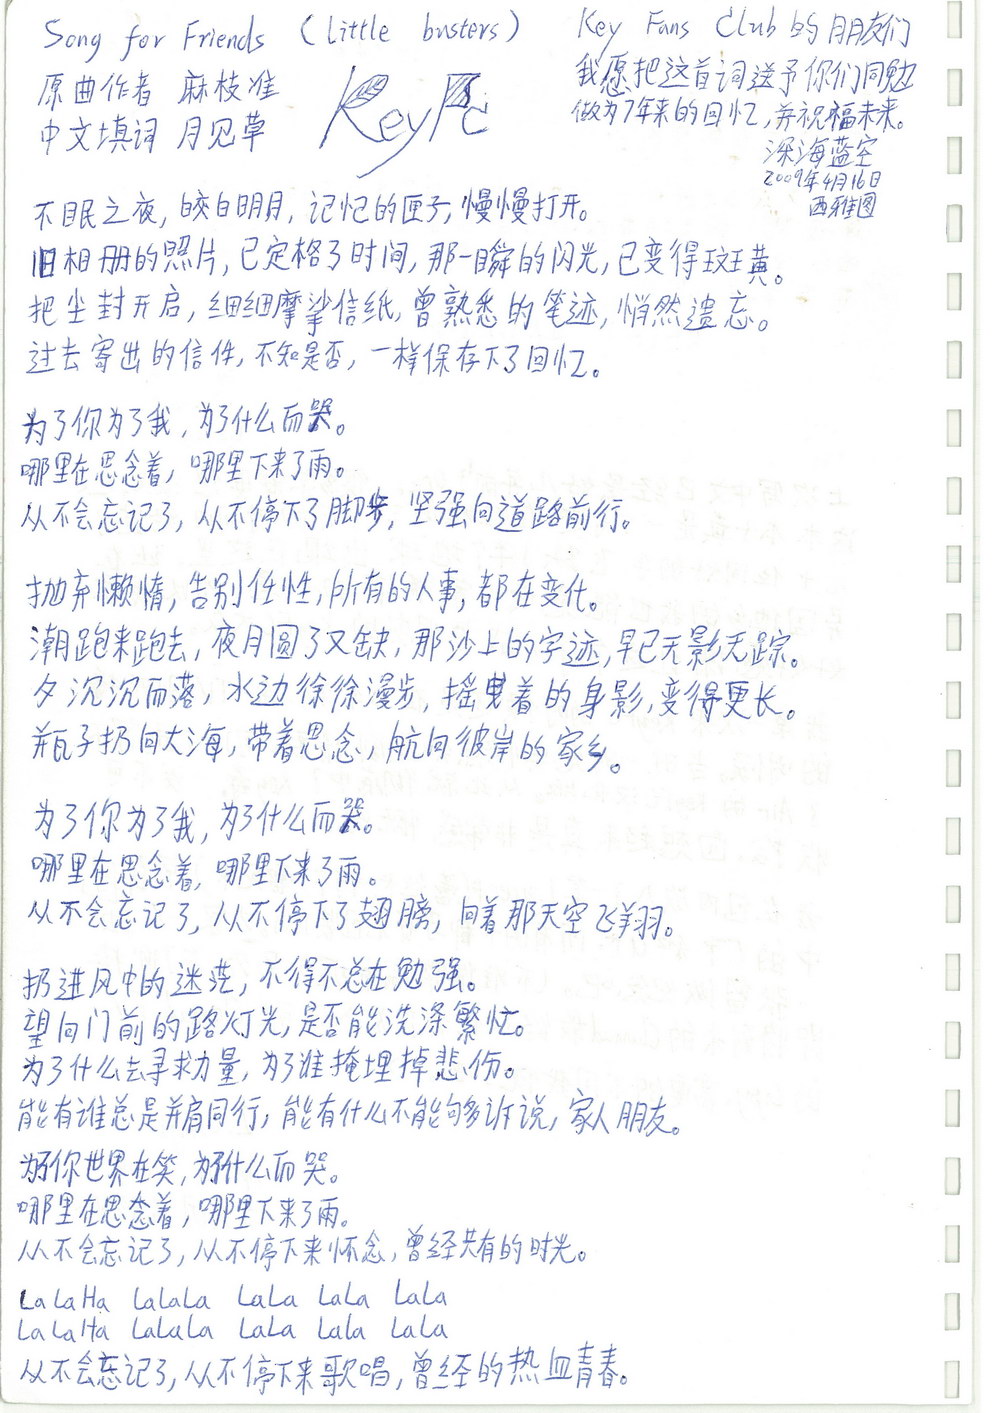 Song for Friends (little busters)
原曲作者 麻枝准
中文填词 月见草
KeyFC
Key Fans Club的朋友们
我愿把这首词送予你们同勉
做为7年来的回忆,并祝福未来。
深海蓝空
2009年4月16日
西雅图
不眠之夜,皎白明月,记忆的匣子,慢慢打开。
旧相册的照片,已定格了时间,那一瞬的闪光,已变得斑黄。
把尘封开启,细细摩挲信纸,曾熟悉的笔迹,悄然遗忘。
过去寄出的信件,不知是否,一样保存下了回忆。
为了你为了我,为了什么而哭。
哪里在思念着,哪里下来了雨。
从不会忘记了,从不停下了脚步,坚强向道路前行。
抛弃懒惰,告别任性,所有的人事,都在变化。
潮跑来跑去,夜月圆了又缺,那沙上的字迹,早已无影无踪。
夕沉沉而落,水边徐徐漫步,摇曳着的身影,变得更长。
并瓦子扔向大海,带着思念,航向彼岸的家乡。
为了你为了我,为了什么而哭。
哪里在思念着,哪里下来了雨。
从不会忘记了,从不停下了翅膀,向着那天空飞翔。
扔进风中的迷茫,不得不总在勉强。
望向门前的路灯光,是否能洗涤繁忙。
为了什么去寻求力量,为了谁掩埋掉悲伤。
能有谁总是并肩同行,能有什么不能够多诉说,家人朋友。
为了你世界在笑,为了什么而哭。
哪里在思念着,哪里下来了雨。
从不会忘记了,从不停下来怀念,曾经共有的时光。
LaLaHa LaLaLa LaLa LaLa LaLa
LaLaHa LaLaLa LaLa LaLa LaLa
从不会忘记了,从不停下来歌唱,曾经的热血青春。